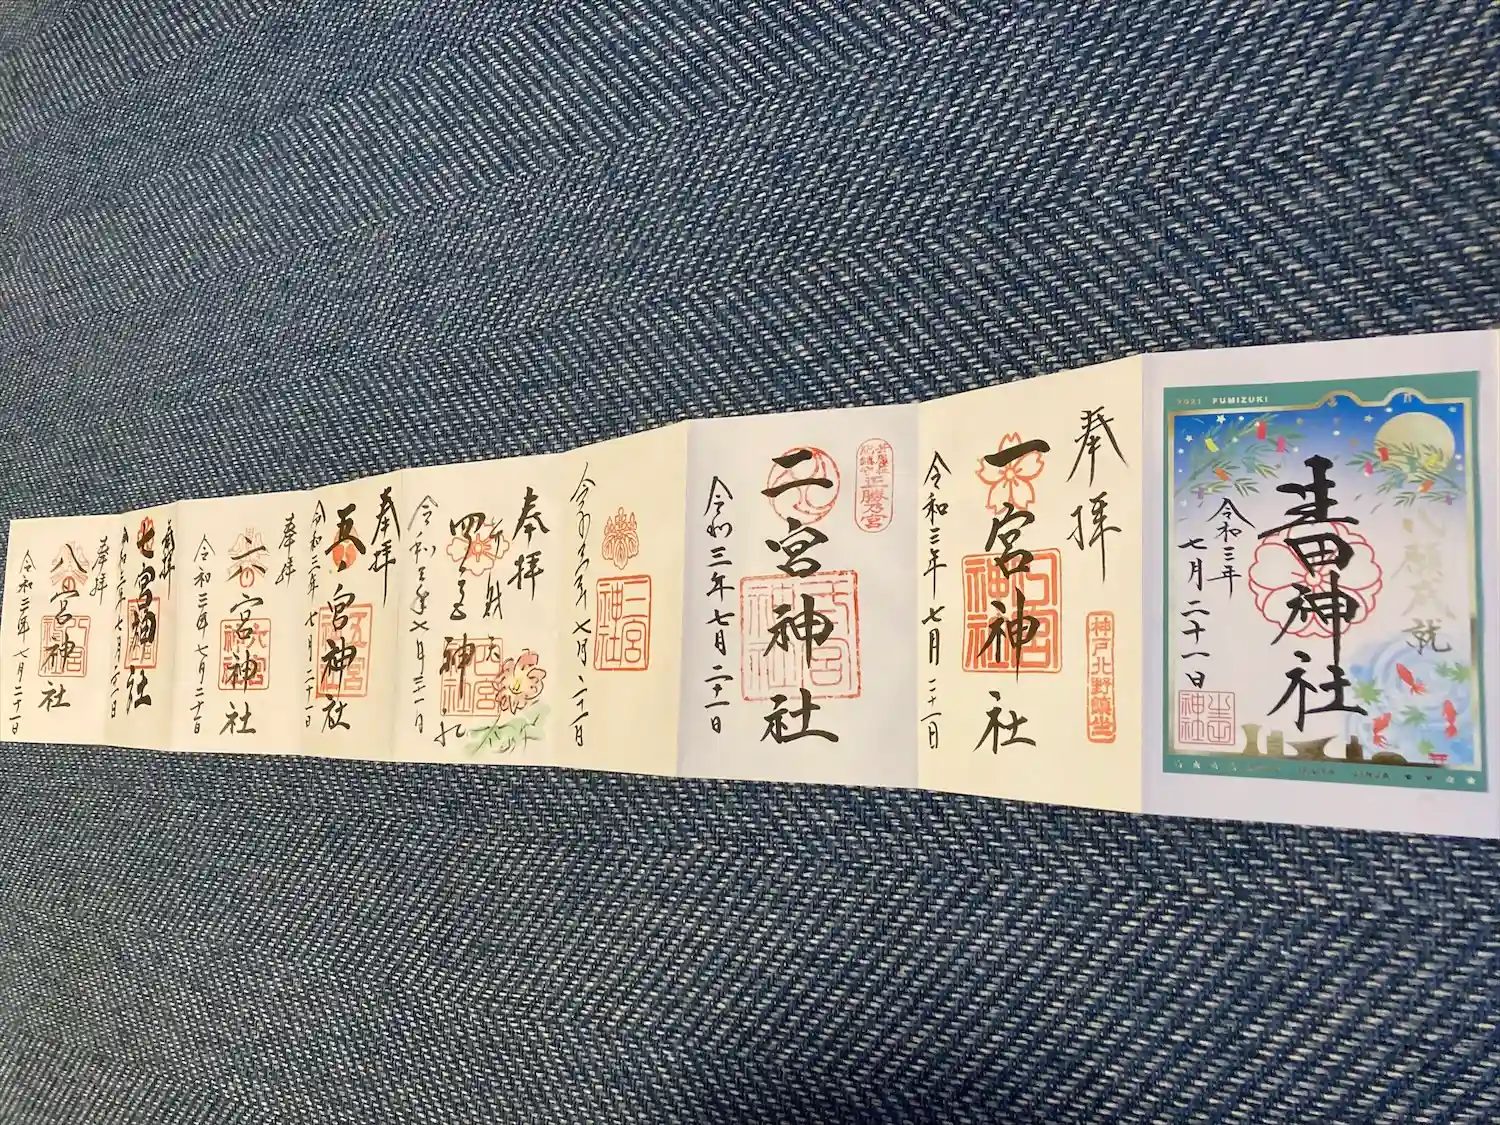 2021 FUMIZUKI
心願成就
生田神社
令和三年
七月二十一日
奉拝
一宮神社
神戸北野鎮守
一宮神社
令和三年 七月 二十一日
二宮神社
令和三年七月二十一日
三宮神社
令和三年 七月 二十一日
奉拝
弁財天
四宮神社
令和三年七月二十一日
奉拝
五宮神社
五宮
令和三年 七月二十一日
奉拝
六宮神社
六宮
令和三年 七月二十一日
奉拝
七宮神社
令和三年 七月二十一日
奉拝
八宮神社
令和三年 七月二十一日